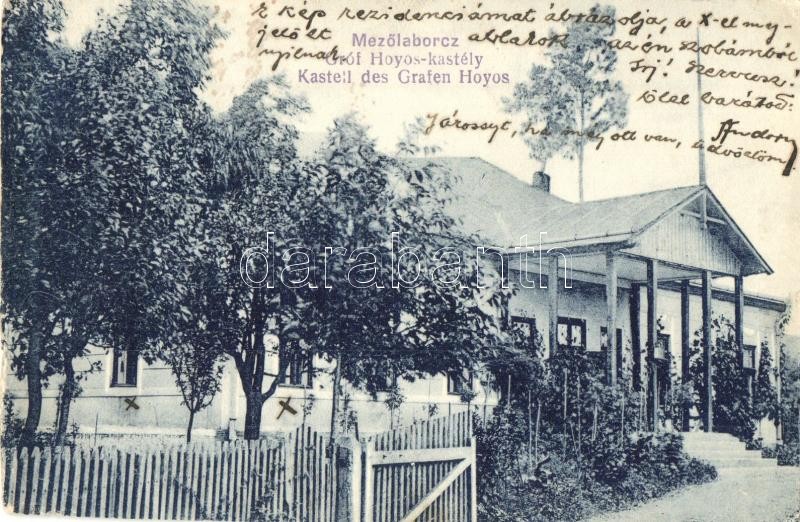 E kép rezidenciámat ábrázolja, a X-el meg-
jelölt ablakok az én szobámból
nyilnak.
Irj! Szervusz!
Ölel barátod:
Andory
Járossyt, ha még ott van, üdvözlöm!
Mezőlaborcz
Gróf Hoyos-kastély
Kastell des Grafen Hoyos
darabanth